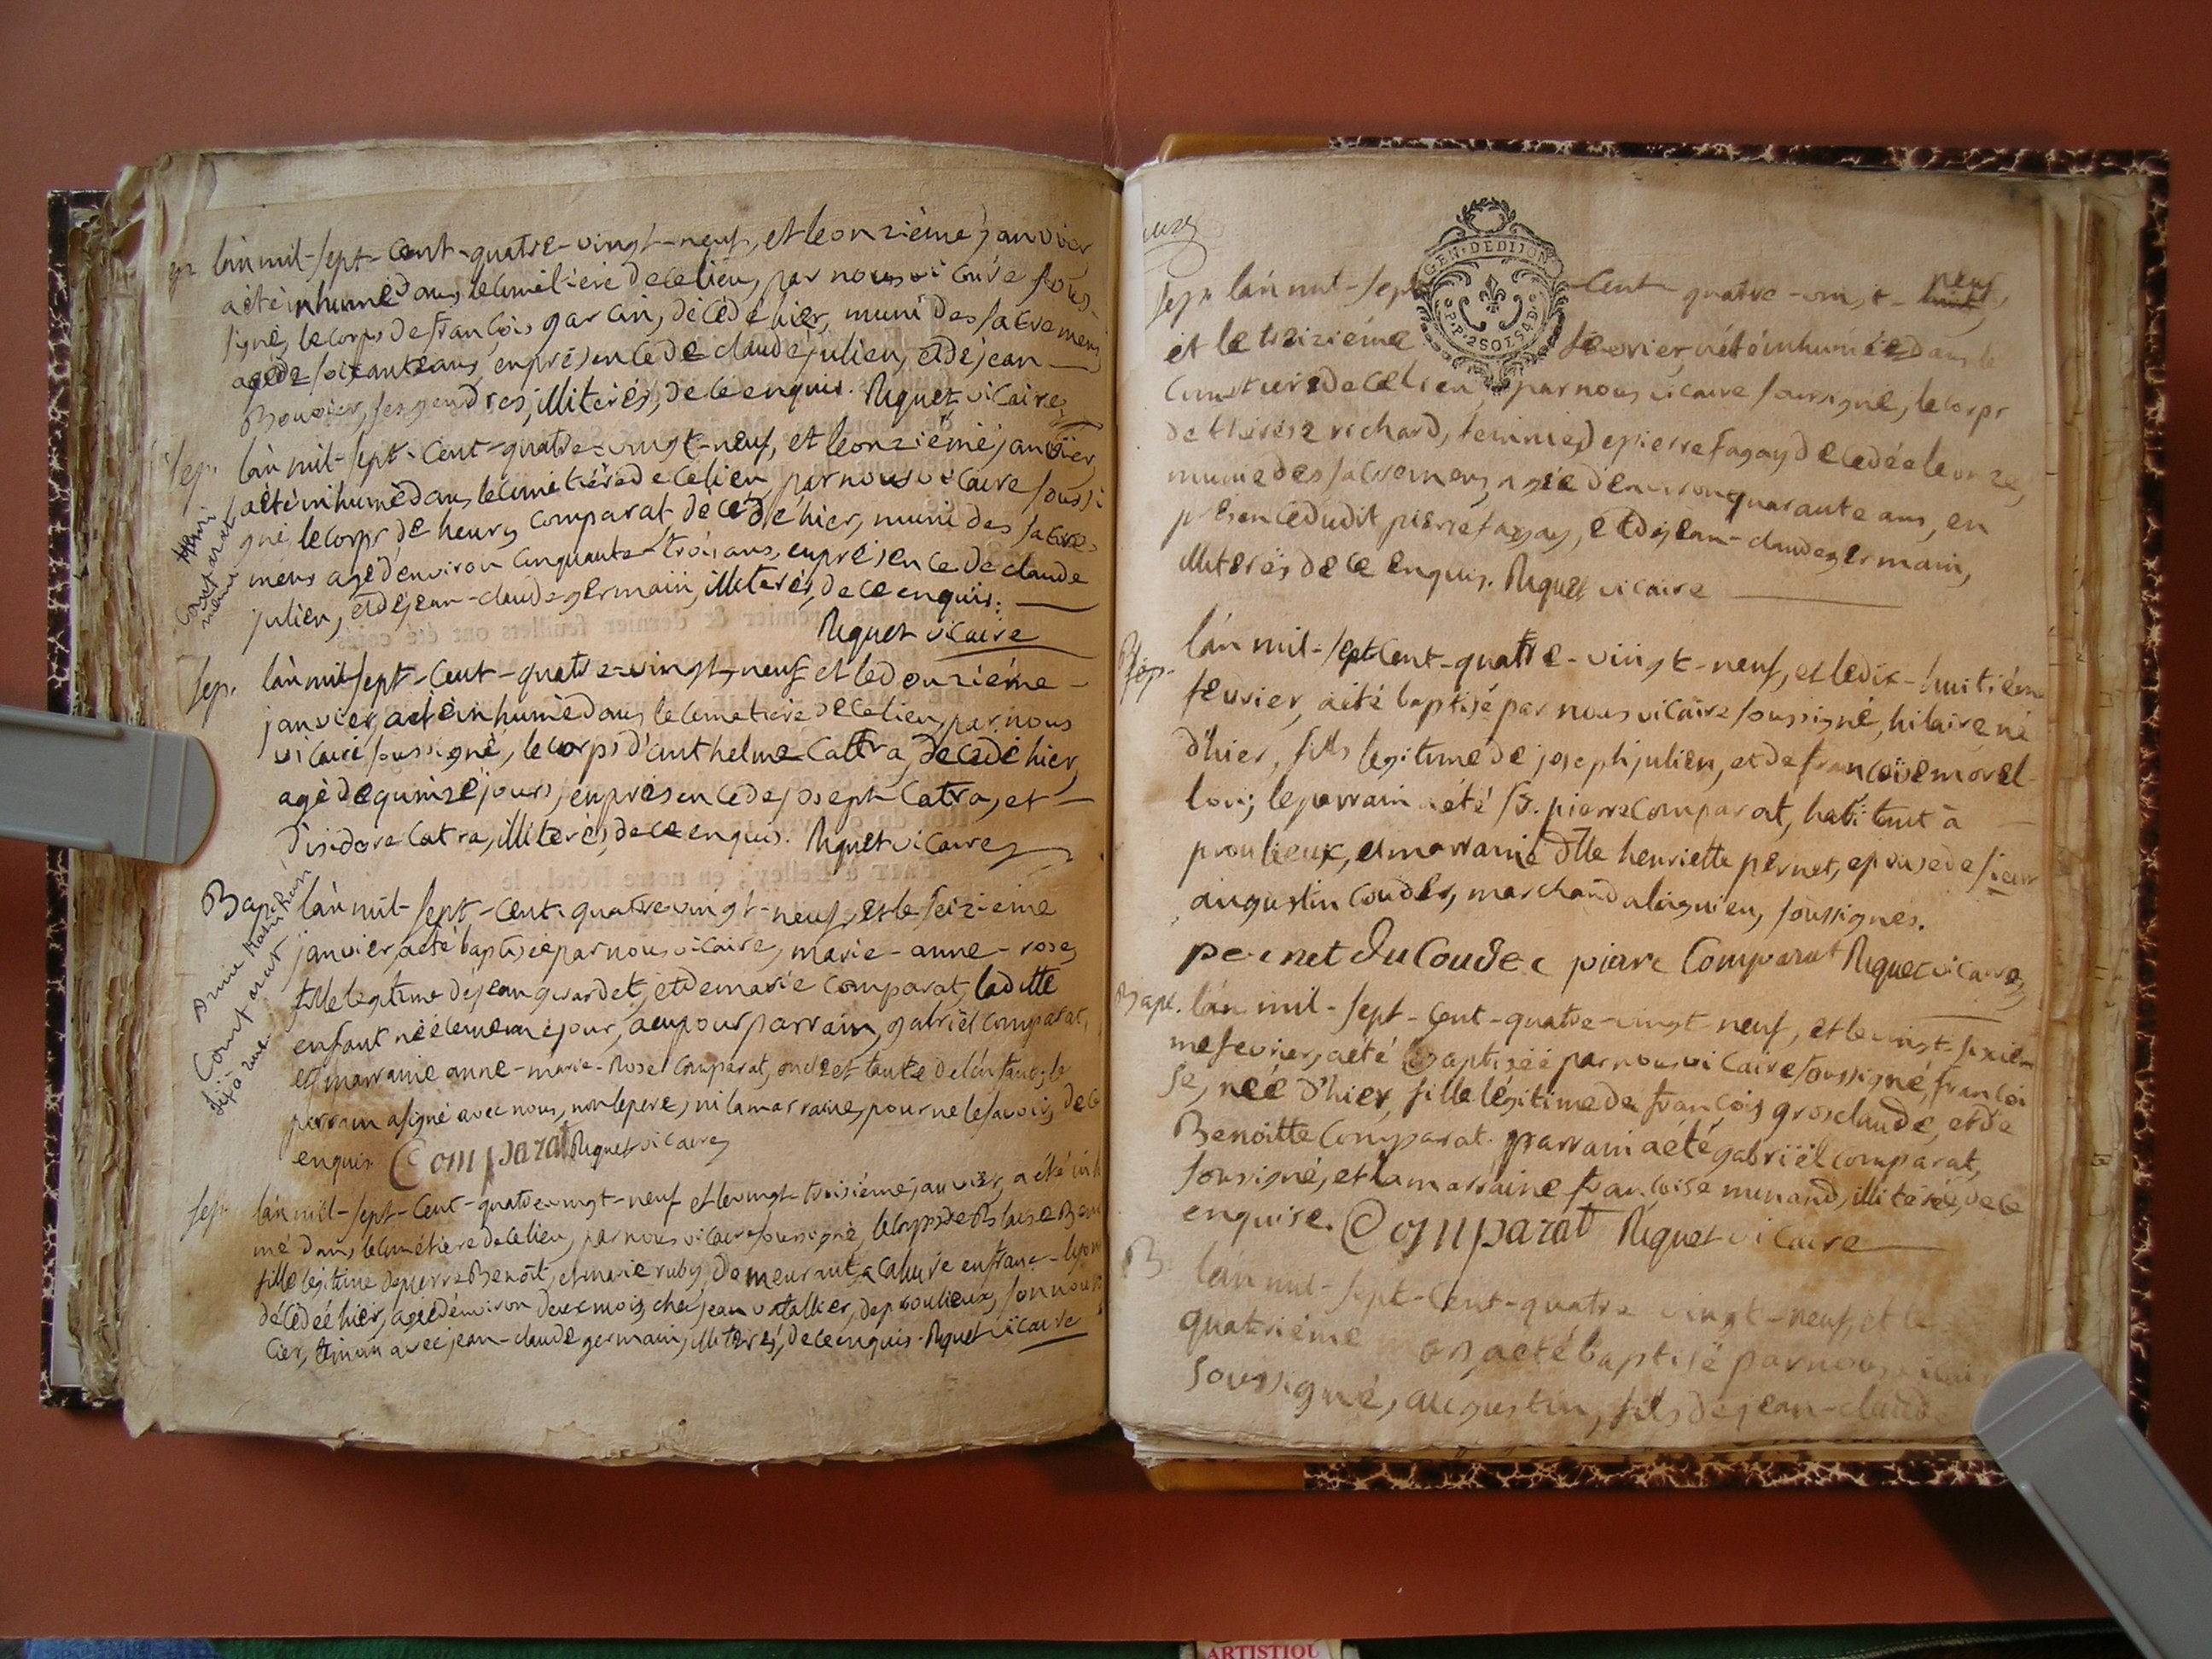 lán mil-sept-cent-quatre-vingt-neuf, et le onzième janvier
a été inhumé dans le cimetière de ce lieu, par nous vicaire sous-
signé, le corps de françois garcin, décédé hier, muni des sacremens
agé de soixante ans, en présence de claude julien, et de jean
Bouvier, ses gendres, illiterés, de ce enquis. Riquet vicaire
sep. lán mil-sept-cent-quatre-vingt-neuf, et le onzième janvier,
a été inhumé dans le cimetière de ce lieu par nous vicaire soussi
gné, le corps de henry comparat, décédé hier, muni des sacre-
mens agé denviron cinquante-trois ans, en présence de claude
julien, et de jean-claude germain, illiterés, de ce enquis.
Riquet vicaire
henri
comparat
sep. lán mil sept-cent-quatre-vingt-neuf et le douzième
janvier, a été inhumé dans le cimetière de ce lieu, par nous
vicaire soussigné, le corps d'anthelme Cattra, decedé hier,
agé de quinze jours, en présence de joseph Catra, et
d'isidore Catra, illiterés, de ce enquis. Riquet vicaire
Bap. lán mil-sept-cent-quatre vingt-neuf, et le seizième
janvier, a été baptisée par nous vicaire, marie-anne-rose,
fille legitime de jean girardet, et de marie Comparat, laditte
enfant née le meme jour, a eu pour parrain, gabriel comparat,
et marraine anne-marie-Rose Comparat, oncle et tante de l'enfant; le
parrain a signé avec nous, non le pere, ni la marraine, pour ne le savoir, de ce
enquis Comparat Riquet vicaire
Comparat
sep. lán mil-sept-cent-quatre vingt-neuf et le vingt-troisième janvier, a été inh
mé dans le cimétière de ce lieu, par nous vicaire soussigné, le corps de Blaise Beno
fille légitime de pierre Benoit, et marie ruby, demeurant, a Caluire en franc-lyon
décédée hier, agée denviron deux mois, chez jean vatallier, de proulieux, son nour
cier, temoin avec jean-claude germain, illiterés, de ce enquis. Riquet vicaire
GEN. DE DIJON
P.P. 2 SOLS 4 D.
sep. lán mil-sept-cent quatre-vingt-huit neuf,
et le treizième février, a été inhumée dans le
cimetiere de ce lieu, par nous vicaire soussigné, le corps
de thérèse richard, femme de pierre fagay decedée le onze,
munie des sacremens, agée d'environ quarante ans, en
présence dudit pierre fagay, et de jean-claude germain,
illiterés de ce enquis. Riquet vicaire
lán mil-sept cent-quatre-vingt-neuf, et le dix-huitième
fevrier, a été baptisé par nous vicaire soussigné, hilaire, né
d'hier, fils legitime de joseph julien, et de françoise morel-
lon; le parrain a été Sr. pierre Comparat, habitant à
proulieux, et marraine dlle henriette pernet, epouse de sieur
augustin Couder, marchand a lagnieu, soussignés.
pernet du Couder piere Comparat Riquet vicaire
Bapt. lán mil-sept-cent-quatre-vingt neuf, et le vingt-sixiè-
me fevrier, a été Baptisée par nous vicaire soussigné, françoi
se, née d'hier, fille légitime de françois grosclaude, et de
Benoitte Comparat. parrain a été gabriël comparat,
soussigné, et la marraine françoise minand, illiterée, de ce
enquise. Comparat Riquet vicaire
B. lán mil-sept-cent-quatre vingt-neuf, et le
quatrième mars, a été baptisé par nous vicai
soussigné, augustin, fils de jean-claude
ARTISTIQU